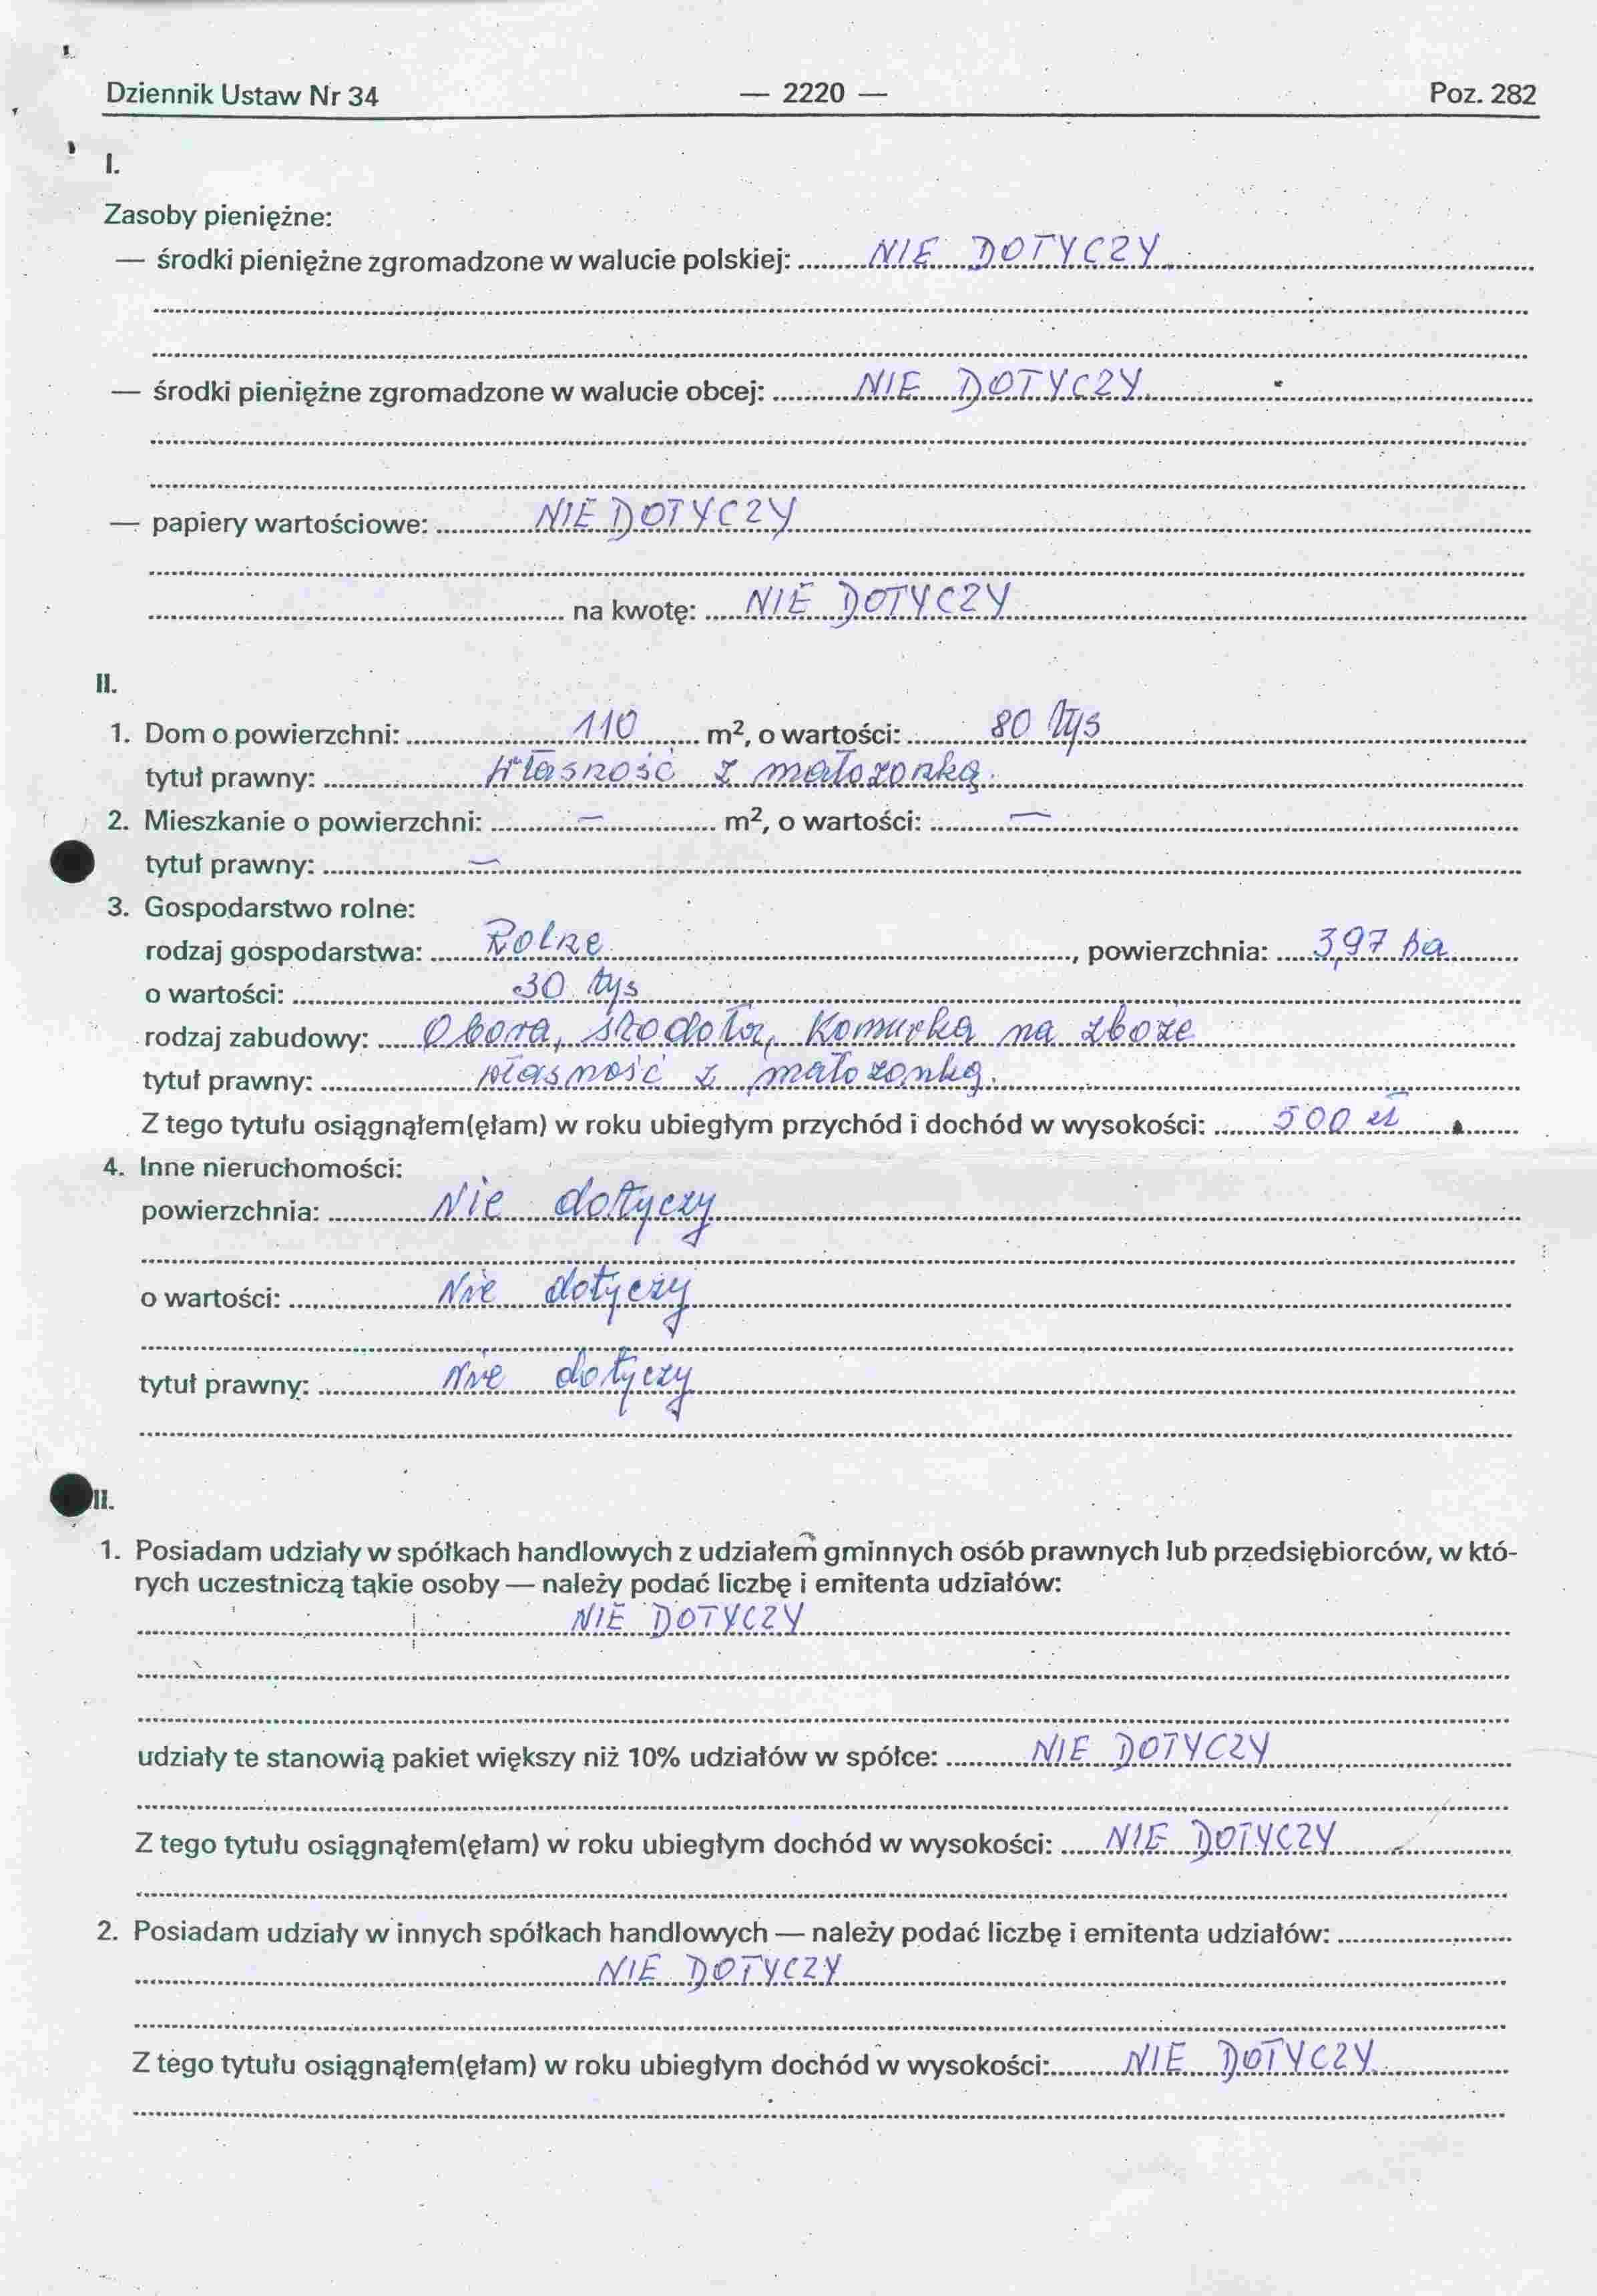 Dziennik Ustaw Nr 34 — 2220 — Poz. 282
I.
Zasoby pieniężne:
— środki pieniężne zgromadzone w walucie polskiej: NIE DOTYCZY
— środki pieniężne zgromadzone w walucie obcej: NIE DOTYCZY.
— papiery wartościowe: NIE DOTYCZY
na kwotę: NIE DOTYCZY
II.
1. Dom o powierzchni: 110 m², o wartości: 80 tys
tytuł prawny: własność z małożonką.
2. Mieszkanie o powierzchni: — m², o wartości: —
tytuł prawny: —
3. Gospodarstwo rolne:
rodzaj gospodarstwa: Rolne, powierzchnia: 3,97 ha
o wartości: 30 tys
rodzaj zabudowy: Obora, stodoła, Komurka na zboże
tytuł prawny: własność z małożonką.
Z tego tytułu osiągnąłem(ęłam) w roku ubiegłym przychód i dochód w wysokości: 500 zł
4. Inne nieruchomości:
powierzchnia: Nie dotyczy
o wartości: Nie dotyczy
tytuł prawny: Nie dotyczy
II.
1. Posiadam udziały w spółkach handlowych z udziałem gminnych osób prawnych lub przedsiębiorców, w któ-
rych uczestniczą takie osoby — należy podać liczbę i emitenta udziałów:
NIE DOTYCZY
udziały te stanowią pakiet większy niż 10% udziałów w spółce: NIE DOTYCZY
Z tego tytułu osiągnąłem(ęłam) w roku ubiegłym dochód w wysokości: NIE DOTYCZY
2. Posiadam udziały w innych spółkach handlowych — należy podać liczbę i emitenta udziałów:
NIE DOTYCZY
Z tego tytułu osiągnąłem(ęłam) w roku ubiegłym dochód w wysokości: NIE DOTYCZY.